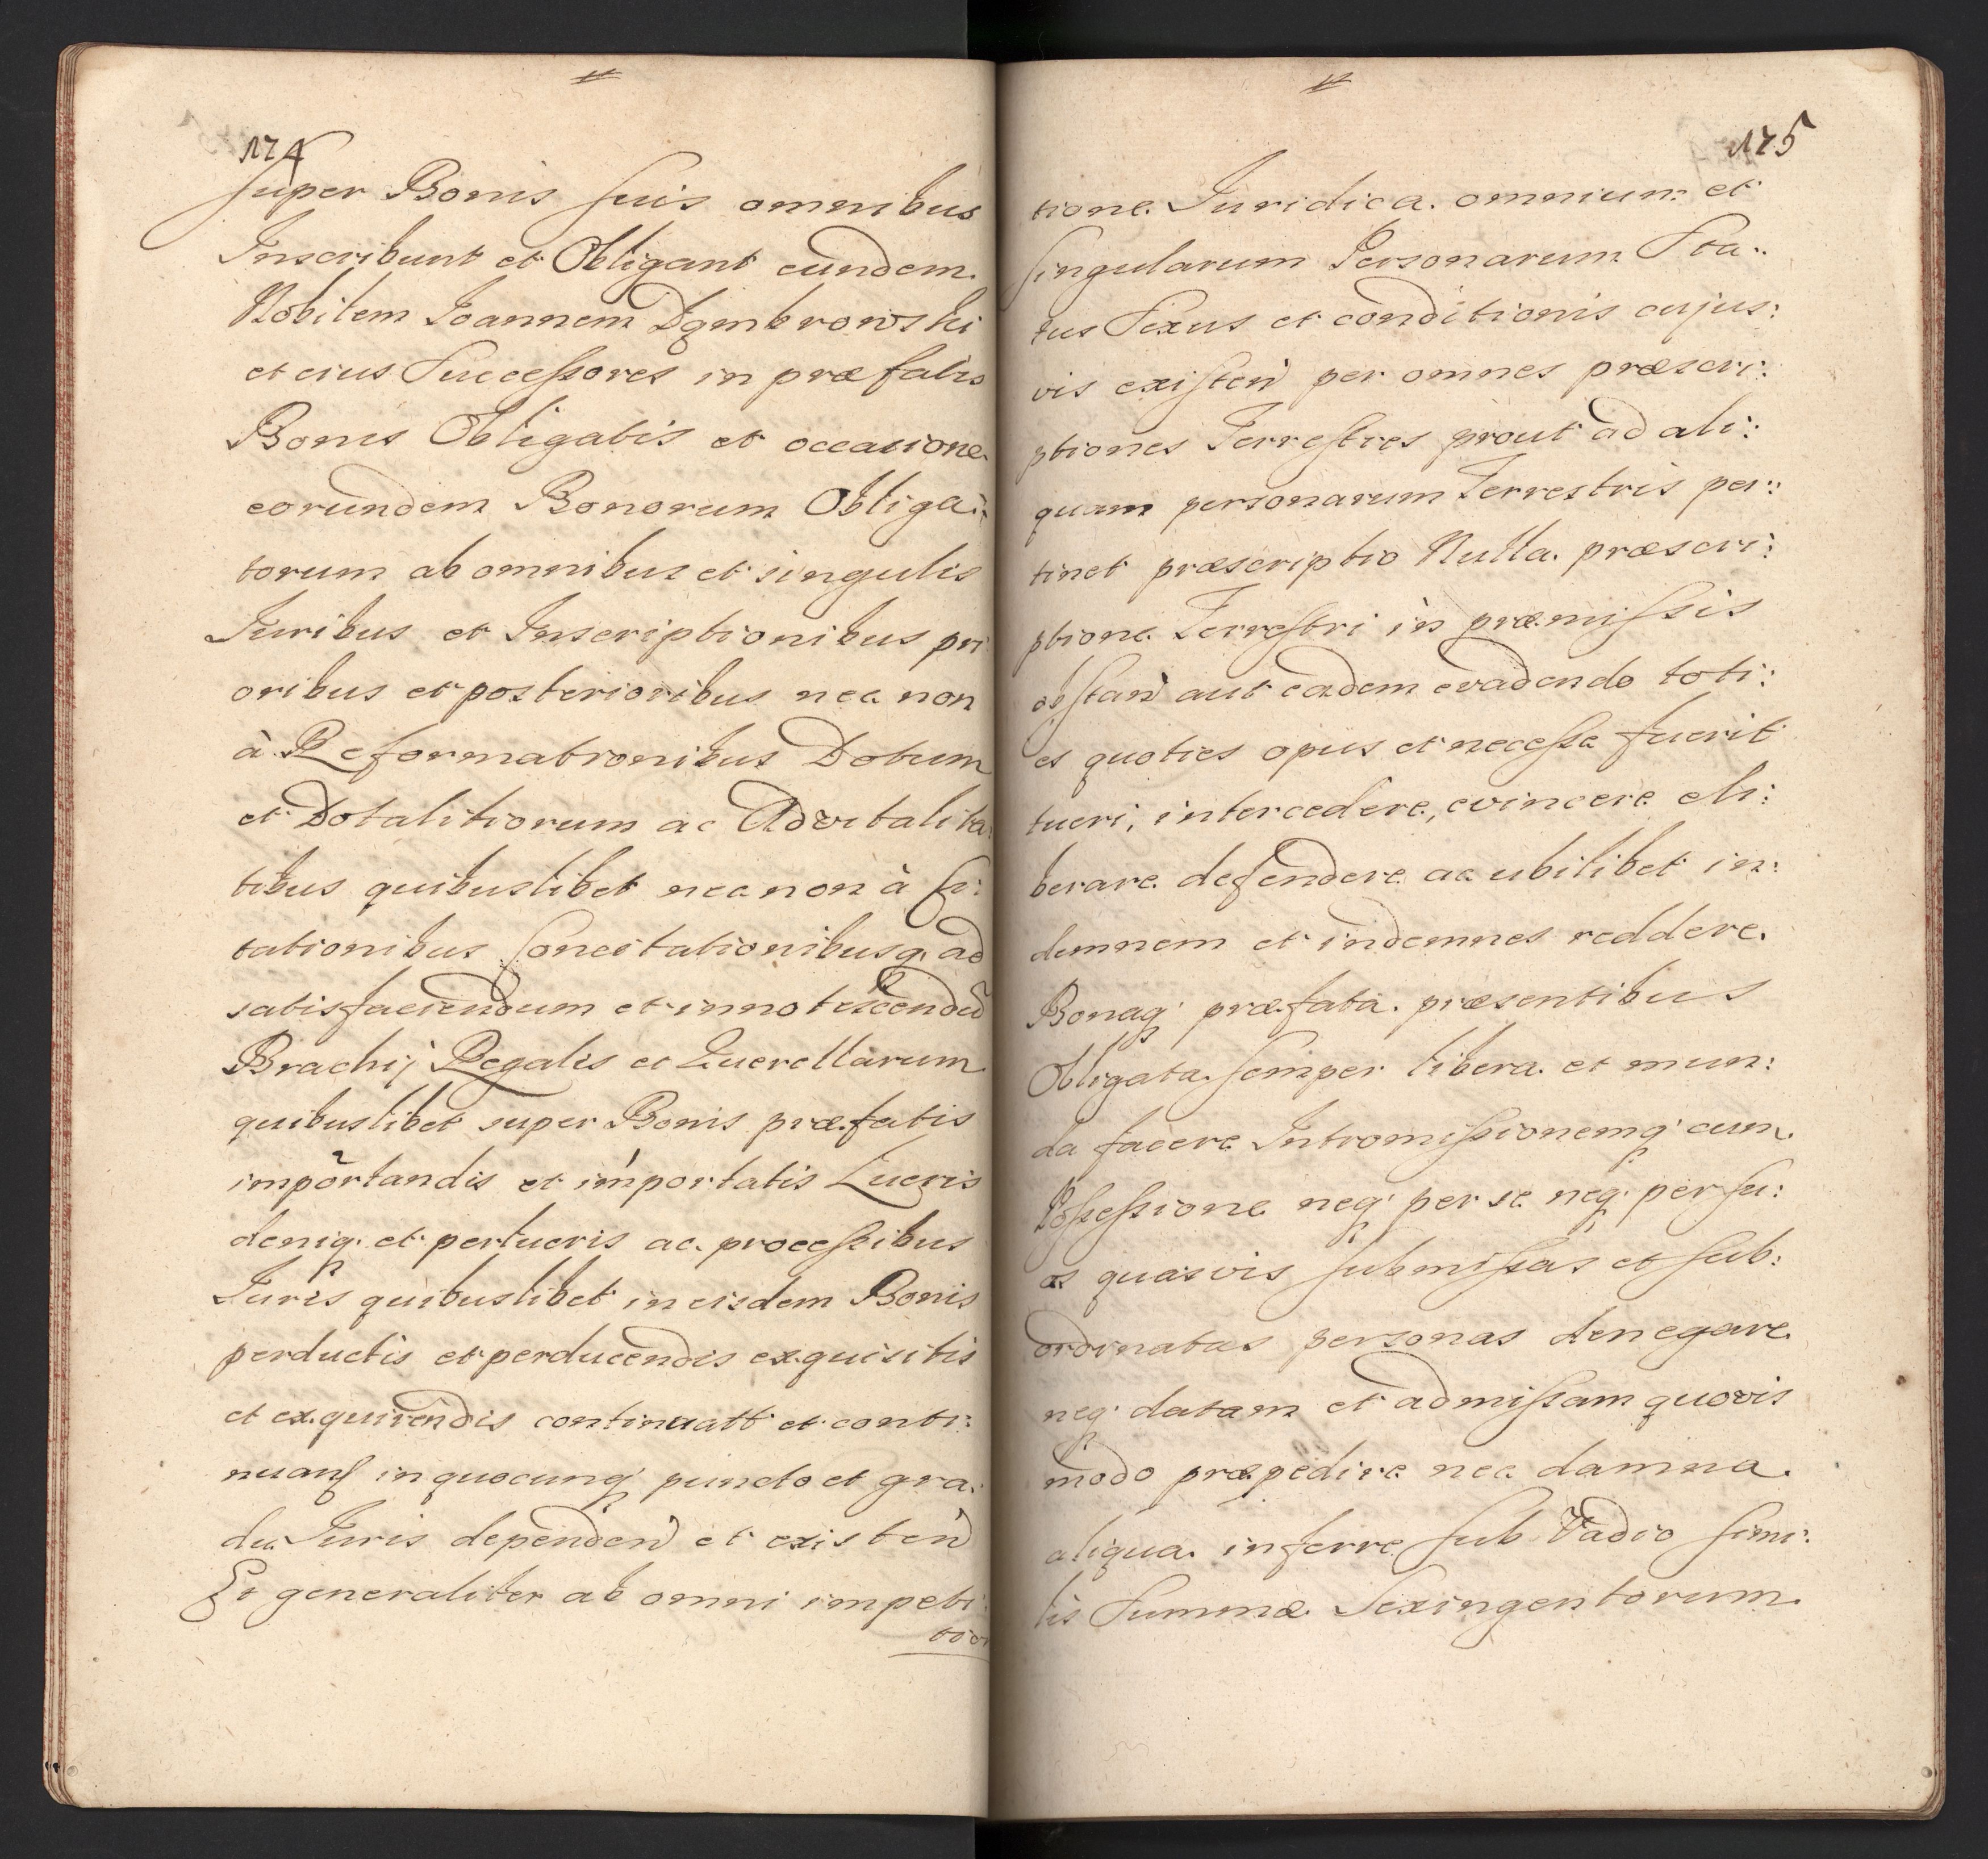 174
super Bonis suis omnibus
Inscribunt et Obligant eundem
Nobilem Joannem Dąmbrowski
et eius Successores in præfatis
Bonis Obligatis et occasione
eorundem Bonorum Obliga:
torum ab omnibus et singulis
Juribus et Inscriptionibus pri
oribus et posterioribus nec non
à Reformationibus Dotum
et Dotalitiorum ac Advitalita
tibus quibuslibet nec non à Ci:
tationibus Concitationibusq. ad
satisfaciendum et innotescendũ
Brachij Regalis et Querellarum
quibuslibet super Bonis præfatis
importandis et importatis Lucris
deniq. et perlucris ac processibus
Juris quibuslibet in eisdem Bonis
perductis et perducendis exquisitis
et exquirendis continuatt et conti:
nuan in quocunq puncto et gra:
du Juris dependen et existen
Et generaliter ab omni impeti
tio
175
tione Juridica omnium et
singularum Personarum Sta:
tus Sexus et conditionis cujus:
vis existen per omnes præscri:
ptiones Terrestres prout ad ali:
quam personarum Terrestris per:
tinet præscriptio Nulla præscri:
ptione Terrestri in præmissis
obstan aut eadem evadendo toti:
es quoties opus et necesse fuerit
tueri, intercedere, evincere eli:
berare defendere ac ubilibet in:
demnem et indemnes reddere.
Bonaq præfata præsentibus
Obligata semper libera et mun:
da facere Intromissionemq cum
Possessione neq per se neq per su:
as quasvis submissas et sub:
ordinatas personas denegare
neq datam et admissam quovis
modo præpedire nec damna
aliqua inferre sub Vadio simi:
lis Summæ Sexingentorum